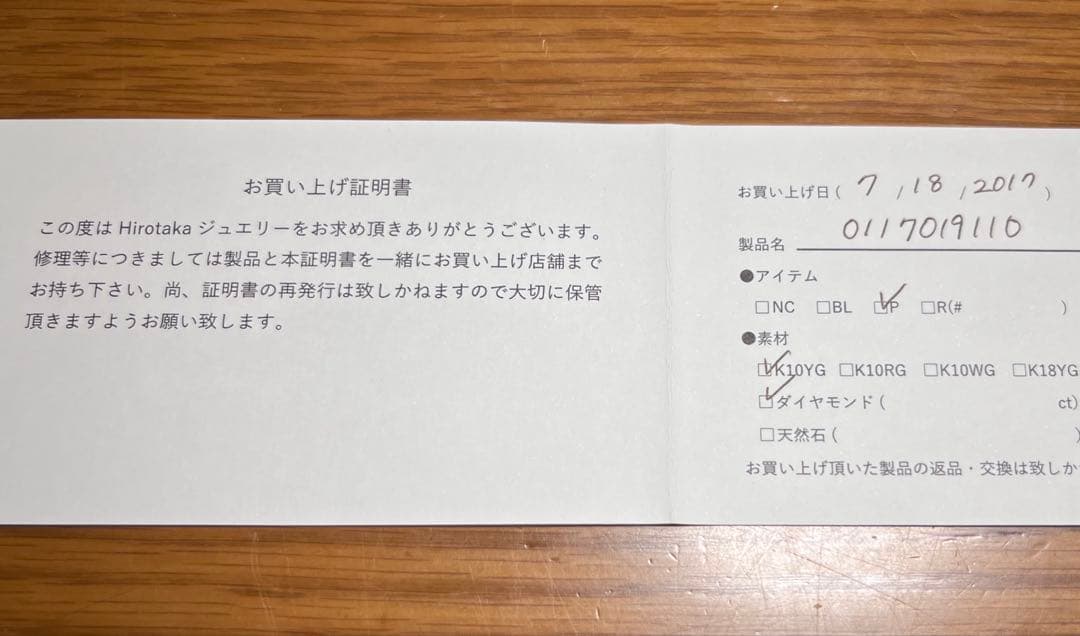 お買い上げ証明書
この度は Hirotaka ジュエリーをお求め頂きありがとうございます。
修理等につきましては製品と本証明書を一緒にお買い上げ店舗まで
お持ち下さい。尚、証明書の再発行は致しかねますので大切に保管
頂きますようお願い致します。
お買い上げ日( 7 / 18 , 2017 )
製品名 0117019110
●アイテム
□NC □BL ☑P □R(# )
●素材
☑K10YG □K10RG □K10WG □K18YG
☑ダイヤモンド( ct)
□天然石( )
お買い上げ頂いた製品の返品・交換は致しか